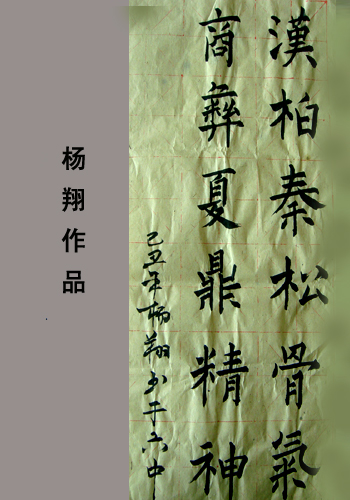 漢柏秦松骨氣
商彝夏鼎精神
己丑年杨翔书于六中
杨翔作品